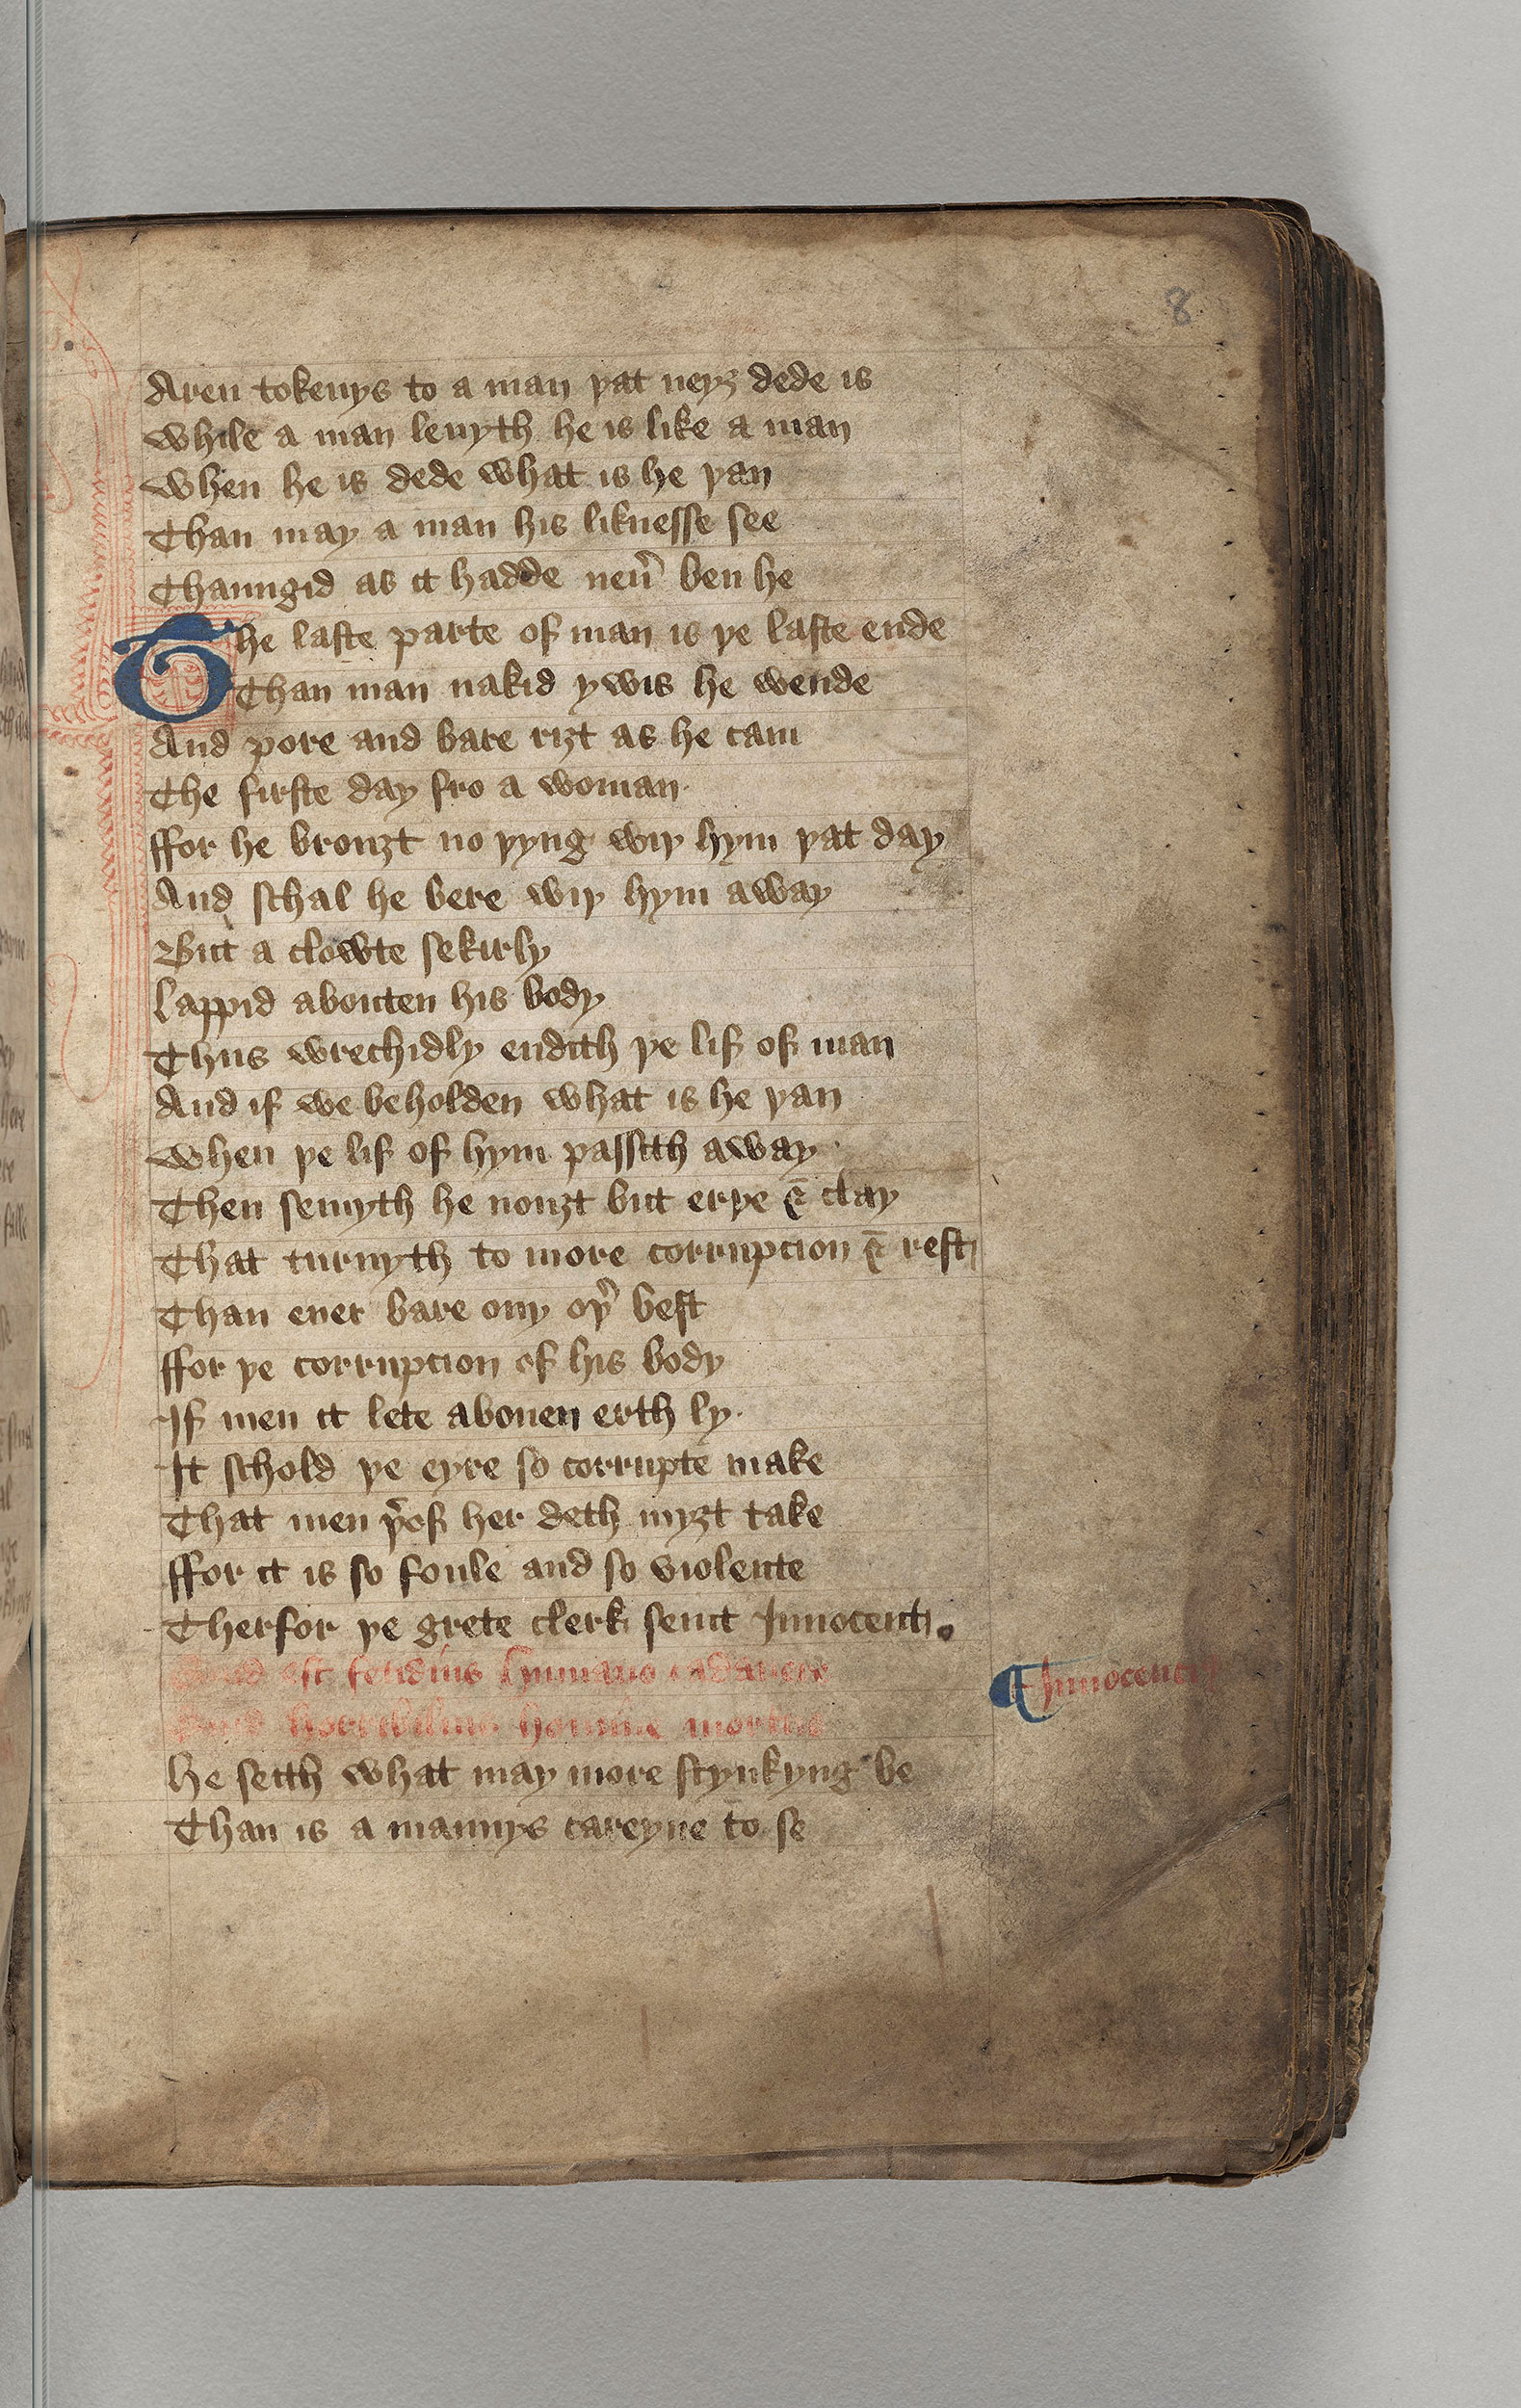 8
Aren tokenys to a man þat neyȝ dede is
While a man leuyth he is like a man
When he is dede what is he þan
Than may a man his liknesse see
Chaungid as it hadde neu̾ ben he
The laste parte of man is þe laste ende
Than man nakid ywis he wende
And pore and bare riȝt as he cam
The firste day fro a woman·
ffor he brouȝt no þyng wiþ hym þat day
And schal he bere wiþ hym away
But a clowte sekirly
Lappid abouten his body
Thus wrechidly endith þe lif of man
And if we beholden what is he þan
When þe lif of hym passith away·
Then semyth he nouȝt but erþe ⁊ clay
That turnyth to more corrupcion ⁊ rest
Than euer bare ony oþ̾ best
ffor þe corrupcion of his body
If men it lete abouen erth ly·
It schold þe eyre so corrupte make
That men þ̾of her deth myȝt take
ffor it is so foule and so violente
Therfor þe grete clerk seint Innocent.
Quid est fetidius humano cadauere
¶ Innocencius
Quid horribilius homine mortuo
He seith what may more stynkyng be
Than is a mannys careyne to se